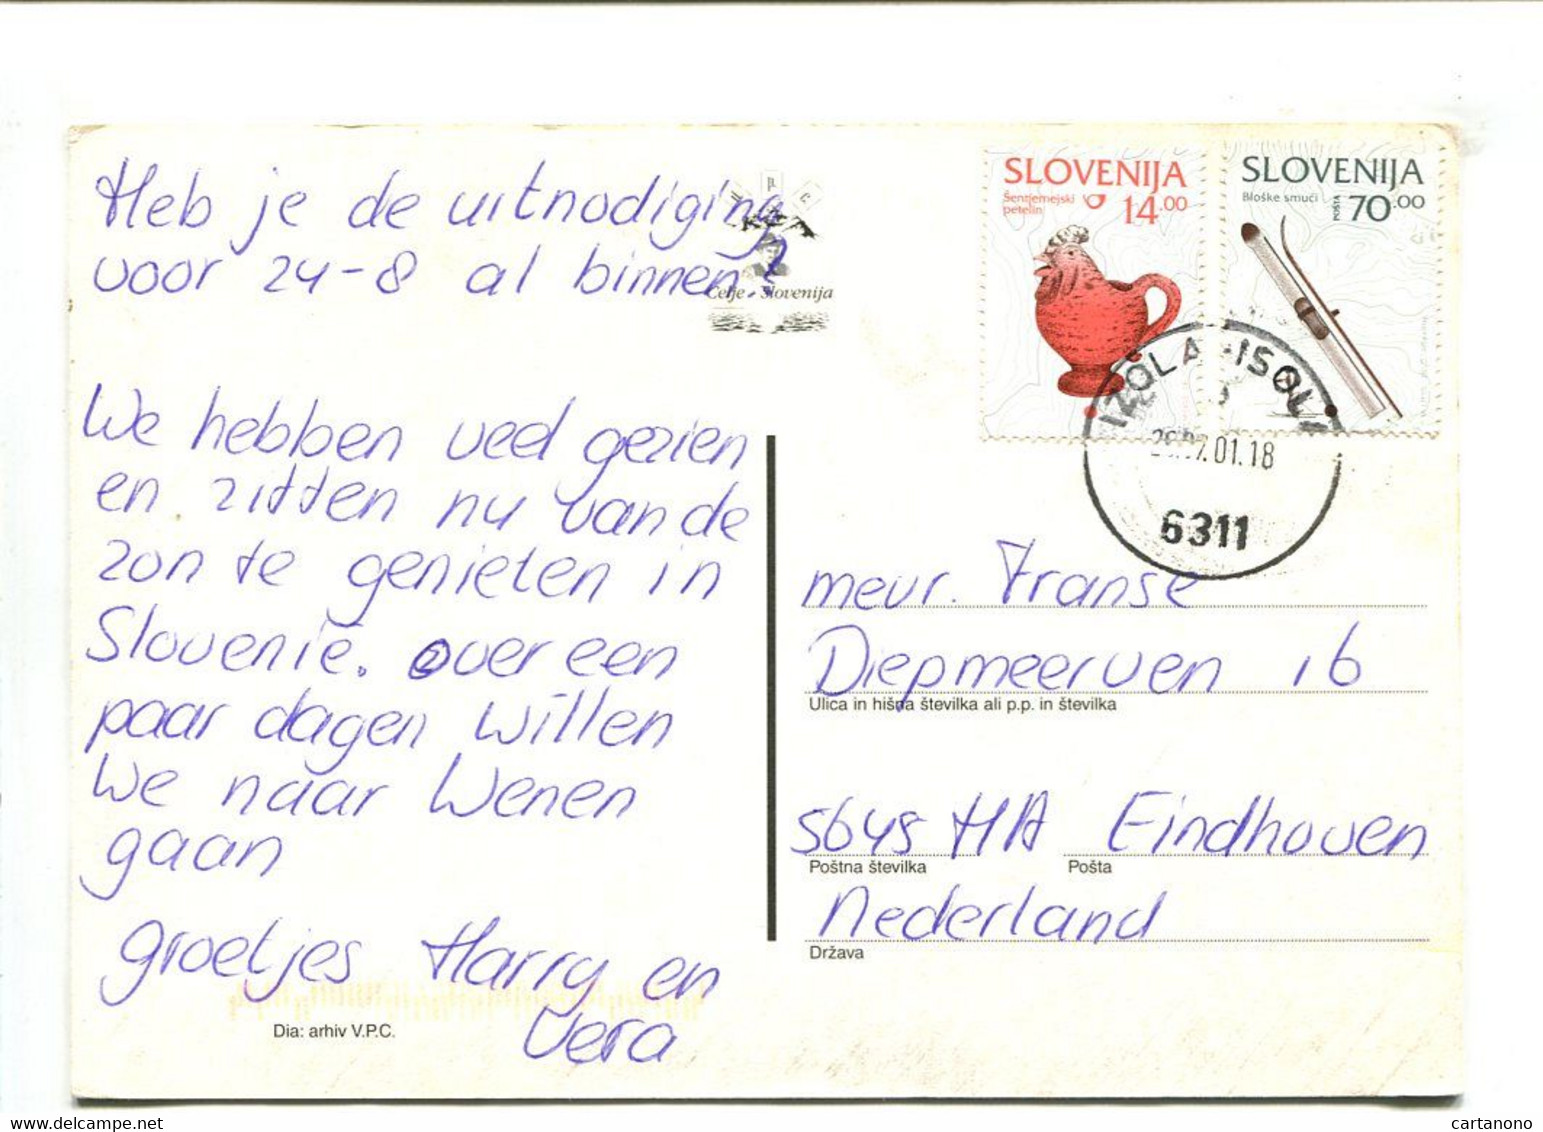 Heb je de uitnodiging
voor 24-8 al binnen?
We hebben veel gezien
en zitten nu van de
zon te genieten in
Slovenie. over een
paar dagen willen
we naar Wenen
gaan
groetjes Harry en
Vera
Dia: arhiv V.P.C.
v p c
Celje - Slovenija
SLOVENIJA
Šentjernejski
petelin
14.00
SLOVENIJA
Bloške smuči
POŠTA
70.00
IZOLA-ISOLA
01.18
6311
mevr. Franse
Diepmeerven 16
Ulica in hišna številka ali p.p. in številka
5645 HA Eindhoven
Poštna številka Pošta
Nederland
Država
cartanono